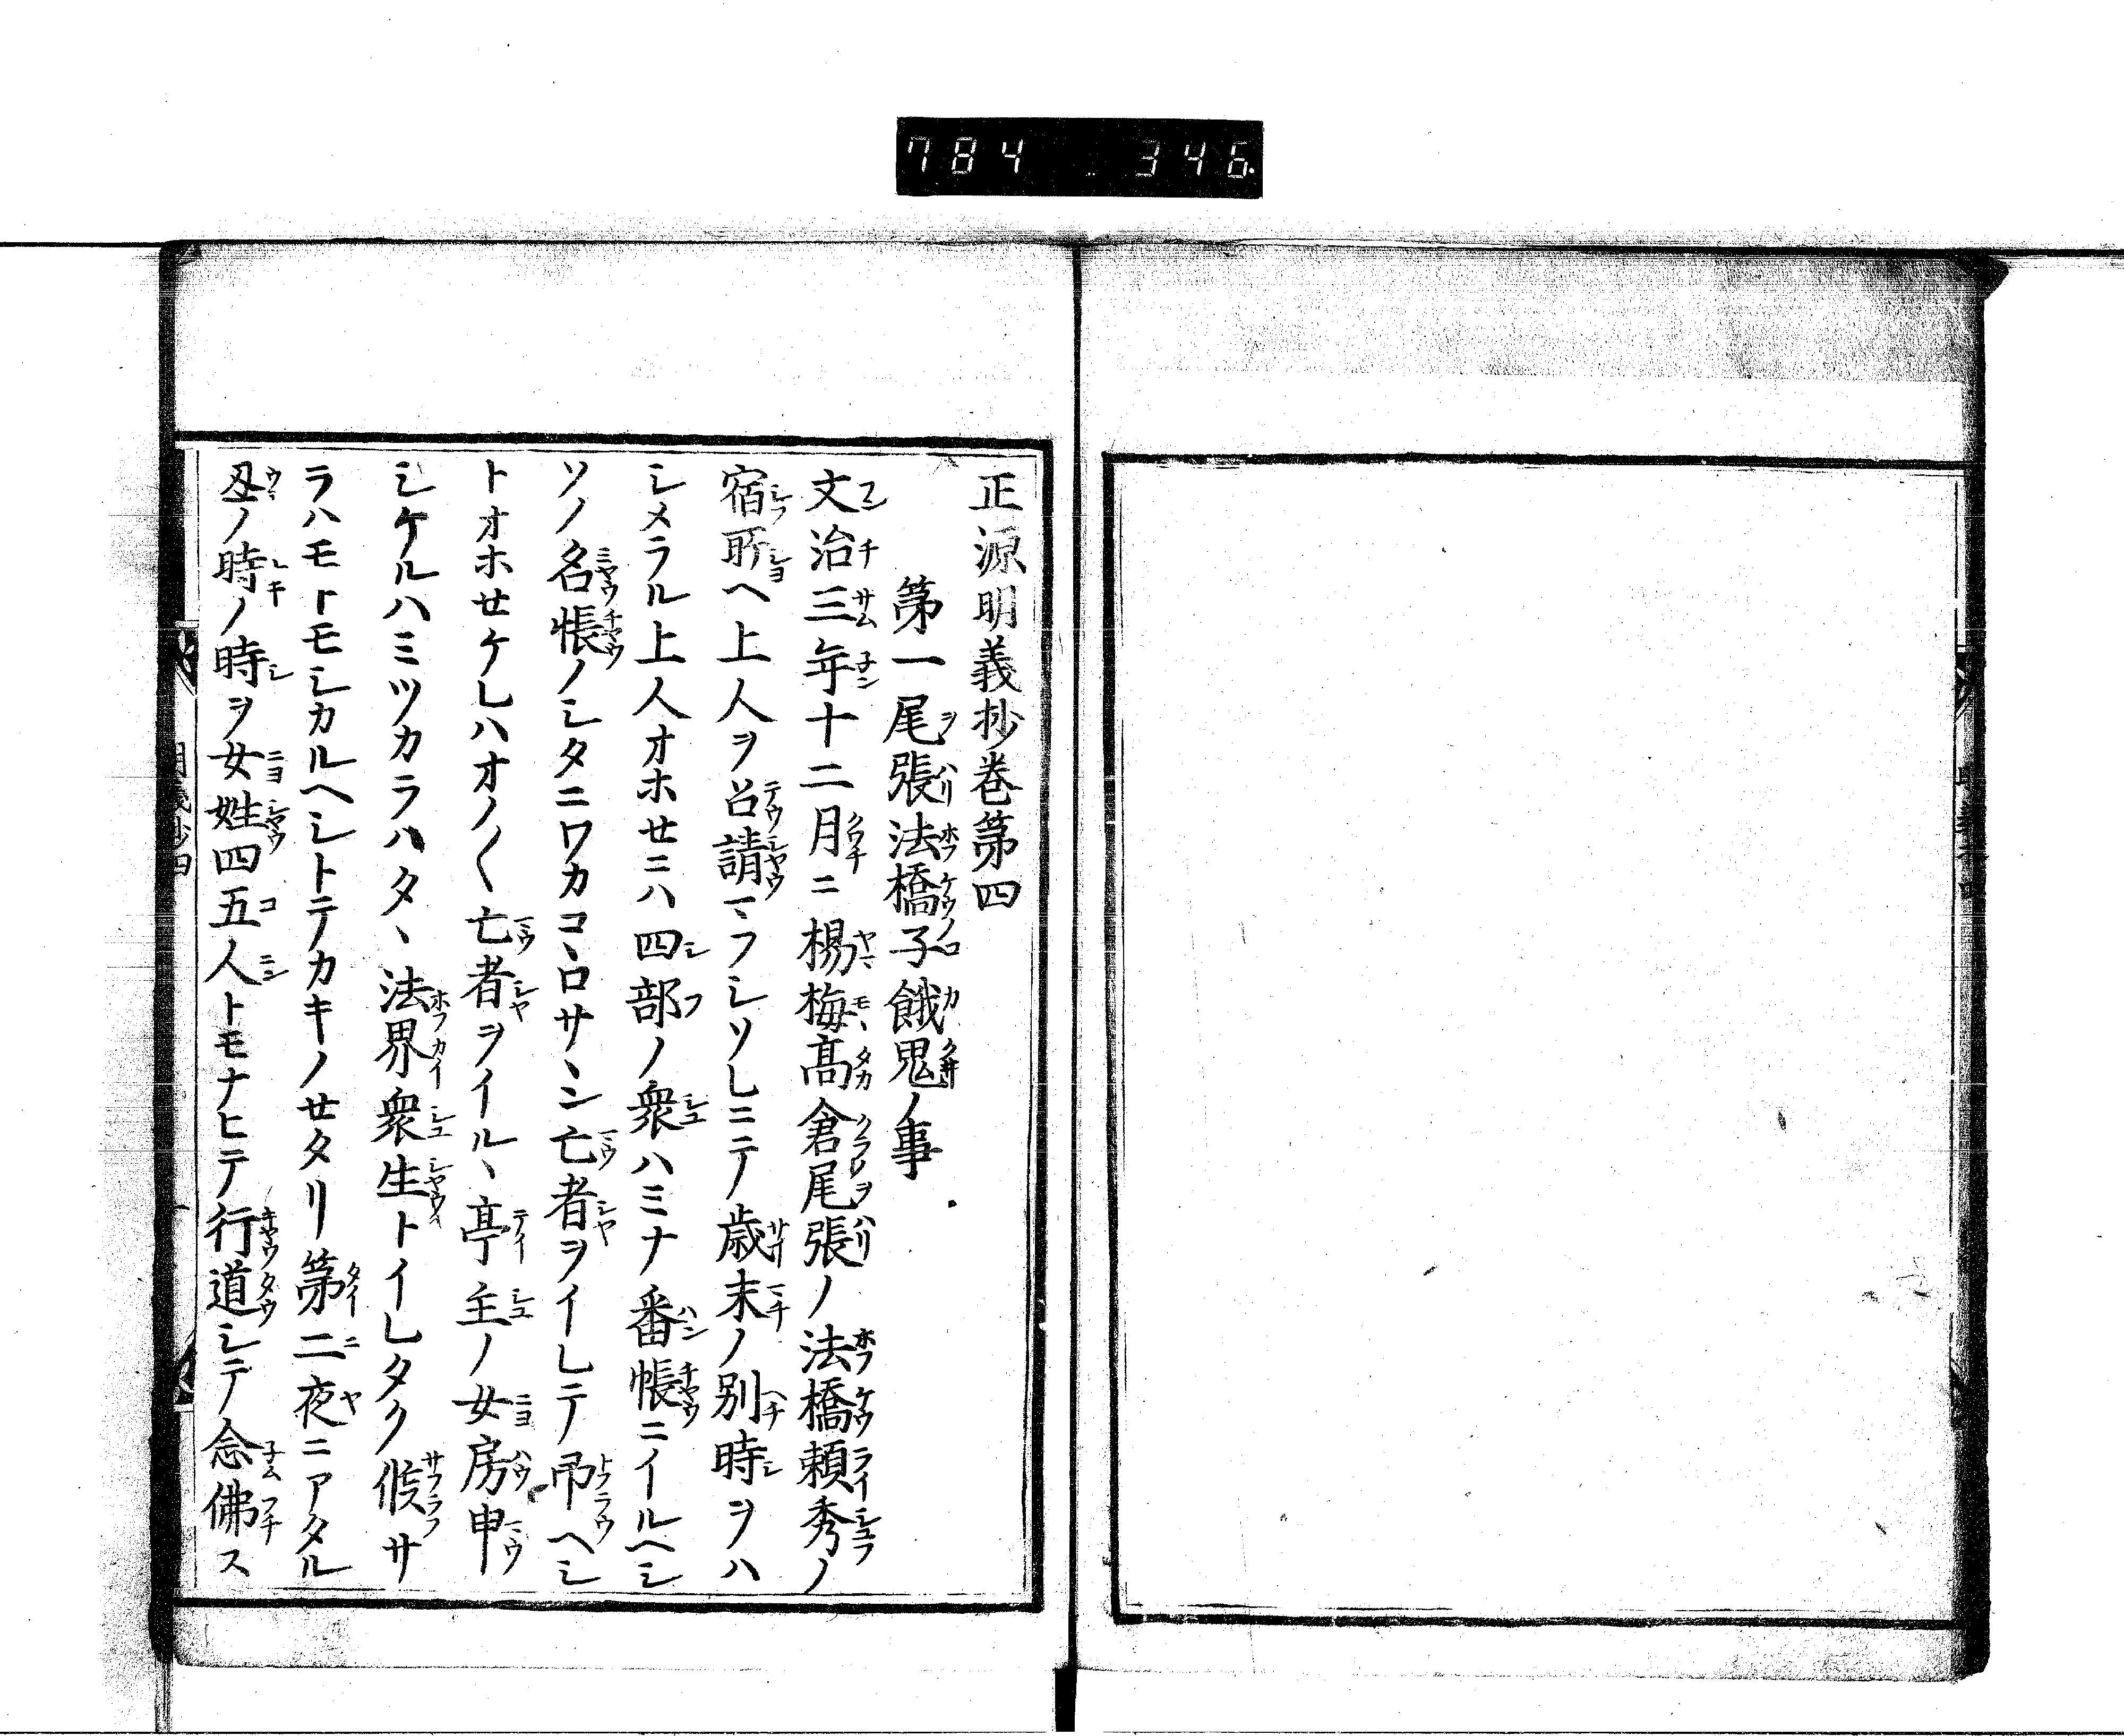 784 346.
正源明義抄巻第四
第一尾張法橋子餓鬼ノ事
文治三年十二月ニ楊梅髙倉尾張ノ法橋頼秀ノ
宿所ヘ上人ヲ召請マフシソレニテノ歳末ノ別時ヲハ
シメラル上人オホせニハ四部ノ衆ハミナ番帳ニイルヘシ
ソノ名帳ノシタニワカコヽロサヽシ亡者ヲイレテ吊ヘシ
トオホせケレハオノ〱亡者ヲイルヽ亭主ノ女房申
シケルハミツカラハタヽ法界衆生トイレタク候サ
ラハモトモシカルヘシトテカキノせタリ第二夜ニアタル
丑ノ時ノ時ヲ女姓四五人トモナヒテ行道シテ念佛ス